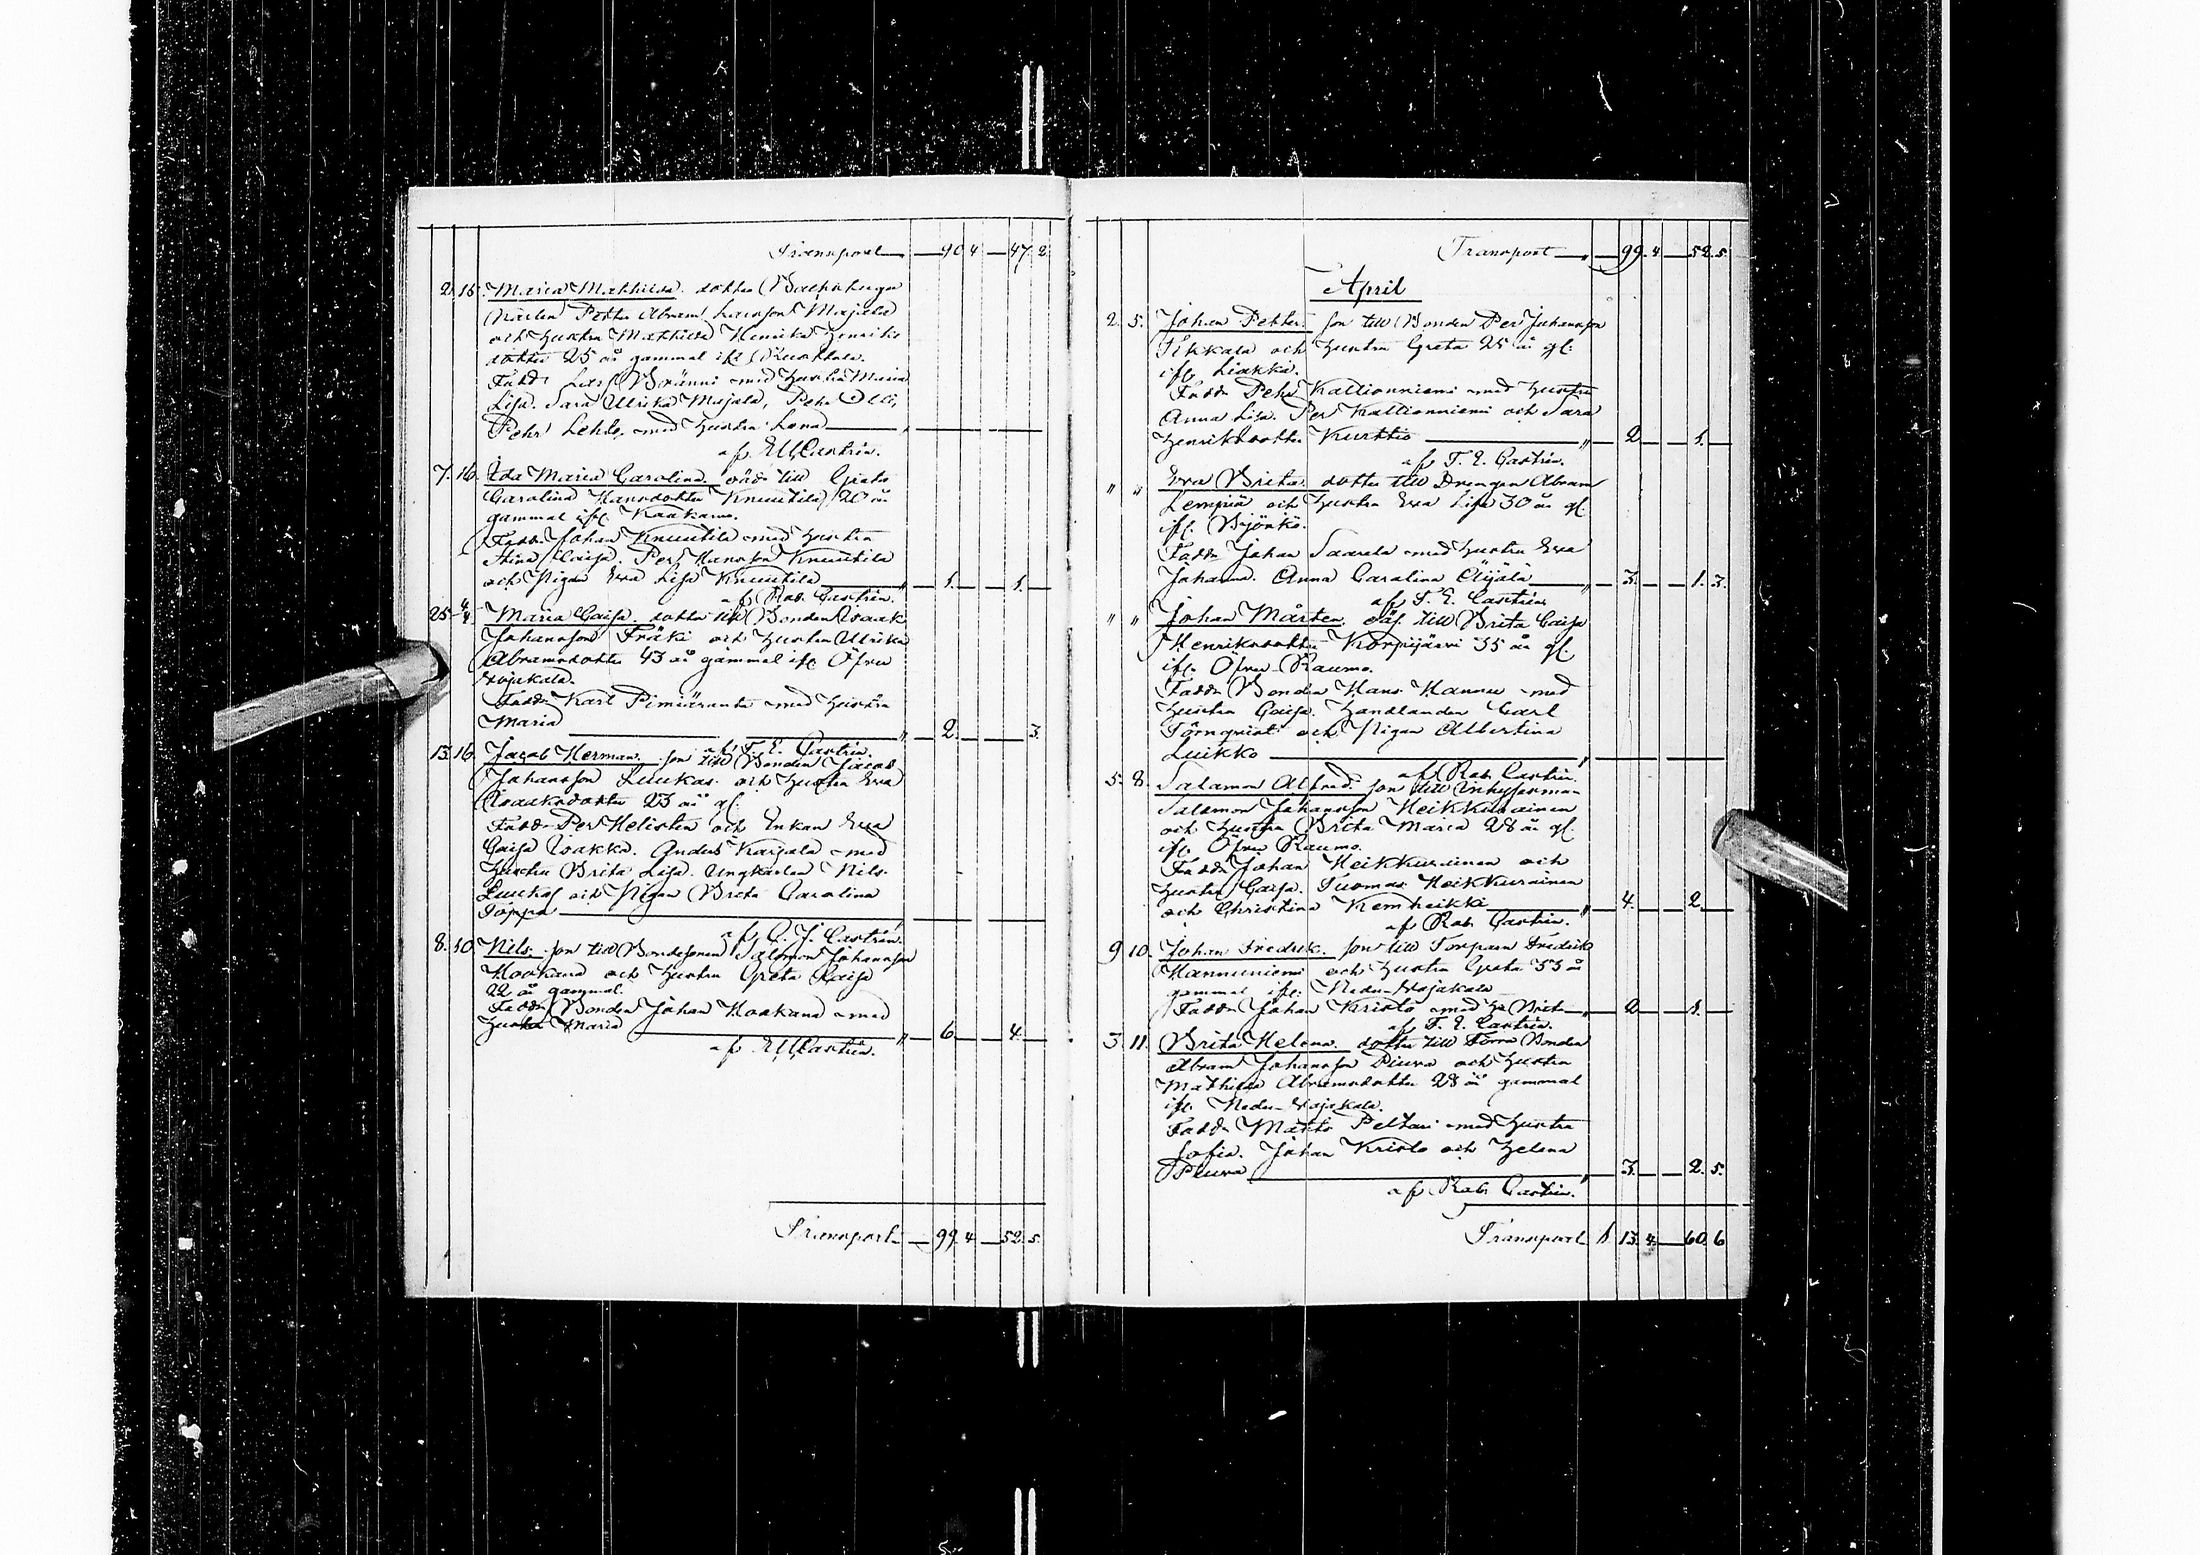 Transport — 90 4 — 47 2
2. 15. Maria Mathilda dotter
Petter Abram Larsson Majala
och hustru Mathilda Henrika Henriks
dotter 25 år gammal ifr.
Fadd. Lars Bränni med hustru Maria
Lisa. Sara Ulrika Majala, Pehr Olli,
Pehr Lehto med hustru Lena — „ — — —
af E U Castrén.
7. 16. Ida Maria Carolina oäd. till Greta
Carolina Hansdotter Knuutila 20 år
gammal ifr. Kaakamo.
Fadd. Johan Knuutila med hustru
Stina Caisa. Per Hansson Knuutila
och Pigan Eva Lisa Knuutila — „ — 1. — 1. —
af Rob. Castrén.
25 4/4 Maria Caisa dotter till Bonden Isaak
Johansson Träki och hustru Ulrika
Abramsdotter 43 år gammal ifr. Öfre
Vojakala.
Fadd. Karl Pimiäranta med hustru
Maria — „ — 2. — 3.
af F. E. Castrén.
13. 16. Jacob Herman son till Bonden Jacob
Johansson Luukas och hustru Eva
Isaaksdotter 23 år gl.
Fadd. Per Helisten och Enkan Eva
Caisa Isakka. Anders Karjala med
hustru Brita Lisa. Ungkarlen Nils
Luukas och Pigan Brita Carolina
Toppo —
af C. J. Castrén.
8. 10. Nils son till Bondesonen Salomon Johansson
Kookana och hustru Greta Caisa
22 år gammal.
Fadd. Bonden Johan Kookana med
hustru Maria — „ — 6 — 4. —
af E U Castrén.
Transport — 99. 4 — 52. 5.
Transport — „ — 99. 4 — 52. 5.
April
2. 5. Johan Petter son till Bonden Per Johansson
Tikkala och hustru Greta 25 år gl.
ifr. Liakka.
Fadd. Pehr Kallionniemi med hustru
Anna Lisa. Per Kallionniemi och Sara
Henriksdotter Kurttio — „ — 2 — 1. —
af F. E. Castrén.
„ „ Eva Brita dotter till Drengen Abram
Lempiä och hustru Eva Lisa 30 år gl.
ifr. Björkö.
Fadd. Johan Saarela med hustru Eva
Johanna. Anna Carolina Äijälä — „ — 3. — 1. 3.
af F. E. Castrén.
„ „ Johan Mårten oäf. till Brita Caisa
Henriksdotter Korpijärvi 35 år gl.
ifr. Öfre Raumo.
Fadd. Bonden Hans Hannu med
hustru Caisa. Handlanden Carl
Törnqvist och Pigan Albertina
Luikko —
af Rob. Castrén.
5. 8. Salamon Alfred son till Inhysesman
Salamon Johansson Heikkurainen
och hustru Brita Maria 28 år gl.
ifr. Öfre Raumo.
Fadd. Johan Heikkurainen och
hustru Caisa. Tuomas Heikkurainen
och Christina Kemheikki — „ — 4. — 2. —
af Rob. Castrén.
9 10. Johan Fredrik son till Torparn Fredrik
Hannuniemi och hustru Greta 33 år
gammal ifr. Nedre Vojakala
Fadd. Johan Kristo med h. Brita — „ — 2 — 1. —
af F. E. Castrén.
3. 11. Brita Helena dotter till Förra Bonden
Abram Johansson Piura och hustru
Mathilda Abramsdotter 28 år gammal
ifr. Nedre Vojakala.
Fadd. Matts Peltari med hustru
Sofia. Johan Kristo och Helena
Piura — „ — 3. — 2. 5.
af Rob. Castrén.
Transport 1 13. 4. — 60. 6